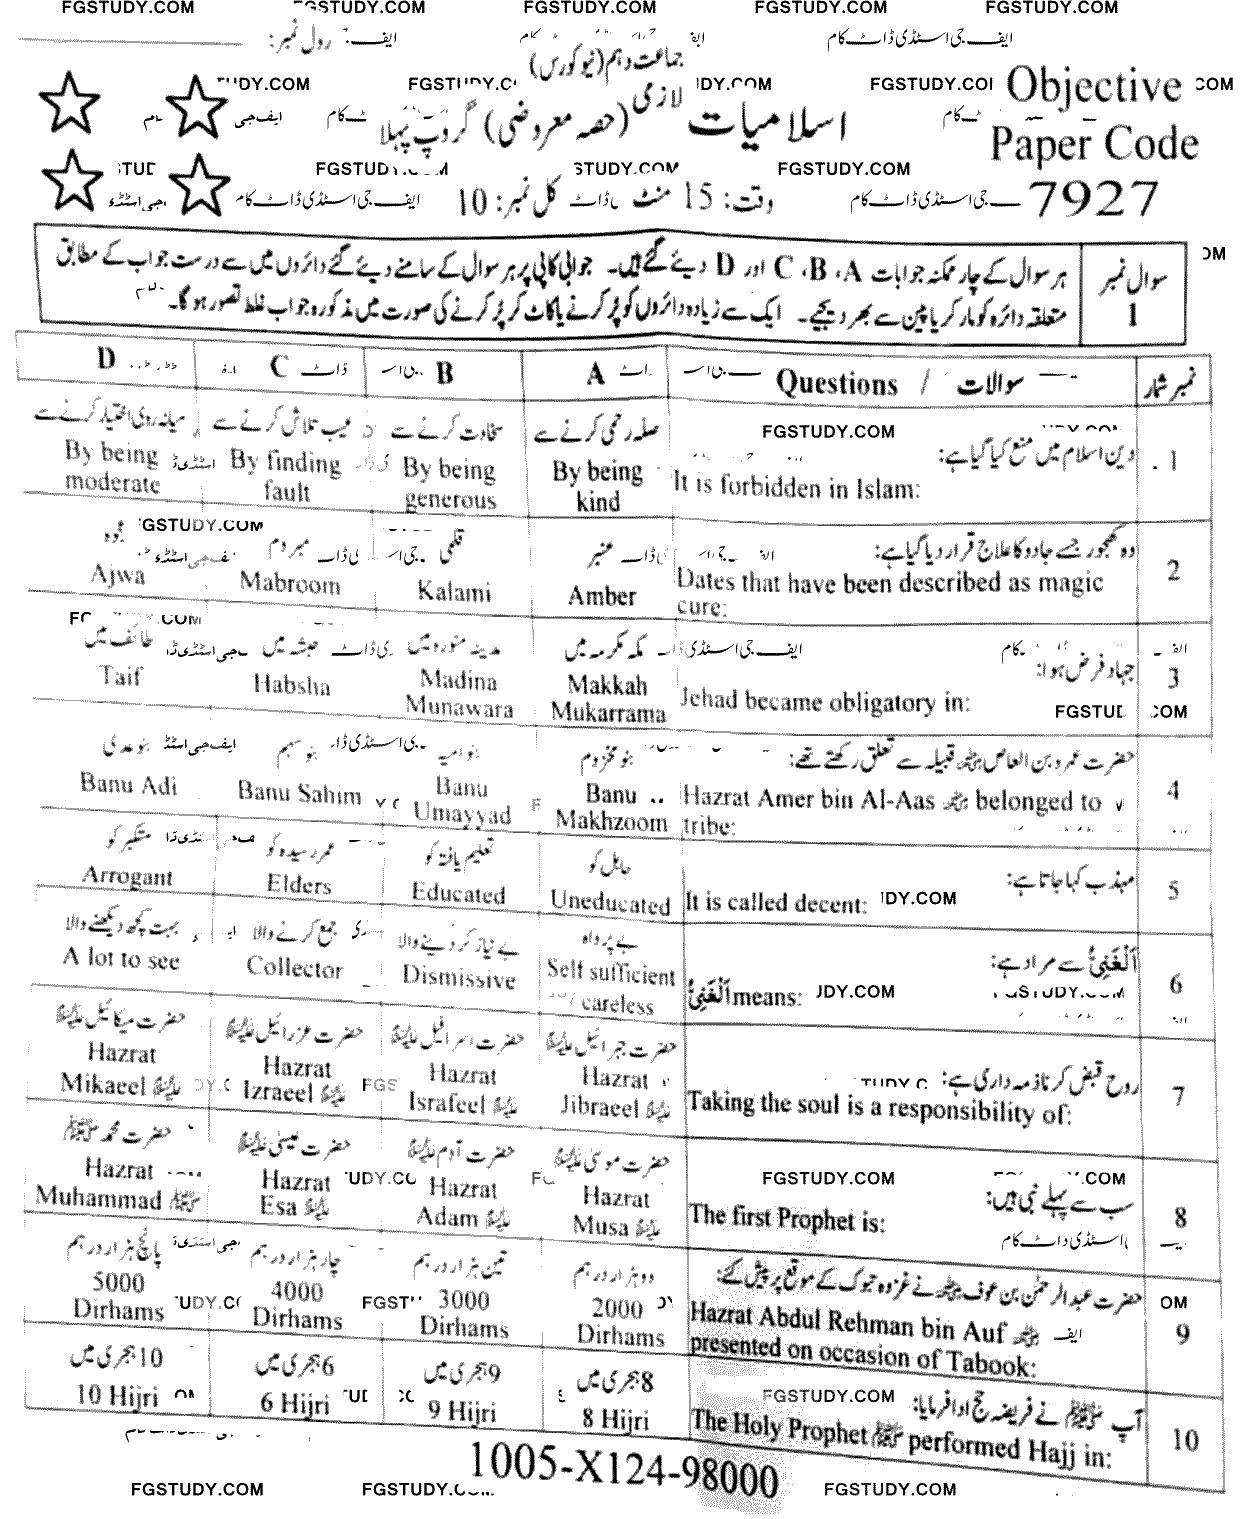 FGSTUDY.COM FGSTUDY.COM FGSTUDY.COM FGSTUDY.COM FGSTUDY.COM
رول نمبر:
ایف جی اسٹڈی ڈاٹ کام
جماعت دہم (نیو کورس)
FGSTUDY.COM
Objective
Paper Code
7927
اسلامیات لازمی (حصہ معروضی) گروپ پہلا
FGSTUDY.COM FGSTUDY.COM
وقت: 15 منٹ کل نمبر: 10
ایف جی اسٹڈی ڈاٹ کام
سوال نمبر 1
ہر سوال کے چار ممکنہ جوابات A، B، C اور D دیئے گئے ہیں۔ جوابی کاپی پر ہر سوال کے سامنے دیئے گئے دائروں میں سے درست جواب کے مطابق
متعلقہ دائرہ کو مارکر یا پین سے بھر دیجیے۔ ایک سے زیادہ دائروں کو پُر کرنے یا کاٹ کر پُر کرنے کی صورت میں مذکورہ جواب غلط تصور ہو گا۔
نمبر شمار سوالات / Questions A B C D
1 دین اسلام میں منع کیا گیا ہے:
It is forbidden in Islam:
صلہ رحمی کرنے سے
By being kind
سخاوت کرنے سے
By being generous
عیب تلاش کرنے سے
By finding fault
میانہ روی اختیار کرنے سے
By being moderate
2 وہ کھجور جسے جادو کا علاج قرار دیا گیا ہے:
Dates that have been described as magic cure:
عنبر
Amber
قلمی
Kalami
مبردم
Mabroom
عجوہ
Ajwa
3 جہاد فرض ہوا:
Jehad became obligatory in:
مکہ مکرمہ میں
Makkah Mukarrama
مدینہ منورہ میں
Madina Munawara
حبشہ میں
Habsha
طائف میں
Taif
4 حضرت عمرو بن العاص رضی اللہ عنہ قبیلہ سے تعلق رکھتے تھے:
Hazrat Amer bin Al-Aas رضی اللہ عنہ belonged to tribe:
بنو مخزوم
Banu Makhzoom
بنو امیہ
Banu Umayyad
بنو سہم
Banu Sahim
بنو عدی
Banu Adi
5 مہذب کہا جاتا ہے:
It is called decent:
جاہل کو
Uneducated
تعلیم یافتہ کو
Educated
عمر رسیدہ کو
Elders
متکبر کو
Arrogant
6 اَلْغَنِیُّ سے مراد ہے:
اَلْغَنِیُّ means:
بے پرواہ
Self sufficient / careless
بے نیاز کر دینے والا
Dismissive
جمع کرنے والا
Collector
بہت کچھ دیکھنے والا
A lot to see
7 روح قبض کرنا ذمہ داری ہے:
Taking the soul is a responsibility of:
حضرت جبرائیل علیہ السلام
Hazrat Jibraeel علیہ السلام
حضرت اسرافیل علیہ السلام
Hazrat Israfeel علیہ السلام
حضرت عزرائیل علیہ السلام
Hazrat Izraeel علیہ السلام
حضرت میکائیل علیہ السلام
Hazrat Mikaeel علیہ السلام
8 سب سے پہلے نبی ہیں:
The first Prophet is:
حضرت موسیٰ علیہ السلام
Hazrat Musa علیہ السلام
حضرت آدم علیہ السلام
Hazrat Adam علیہ السلام
حضرت عیسیٰ علیہ السلام
Hazrat Esa علیہ السلام
حضرت محمد ﷺ
Hazrat Muhammad ﷺ
9 حضرت عبدالرحمٰن بن عوف رضی اللہ عنہ نے غزوہ تبوک کے موقع پر پیش کئے:
Hazrat Abdul Rehman bin Auf رضی اللہ عنہ presented on occasion of Tabook:
دو ہزار درہم
2000 Dirhams
تین ہزار درہم
3000 Dirhams
چار ہزار درہم
4000 Dirhams
پانچ ہزار درہم
5000 Dirhams
10 آپ ﷺ نے فریضہ حج ادا فرمایا:
The Holy Prophet ﷺ performed Hajj in:
8 ہجری میں
8 Hijri
9 ہجری میں
9 Hijri
6 ہجری میں
6 Hijri
10 ہجری میں
10 Hijri
1005-X124-98000
FGSTUDY.COM FGSTUDY.COM FGSTUDY.COM